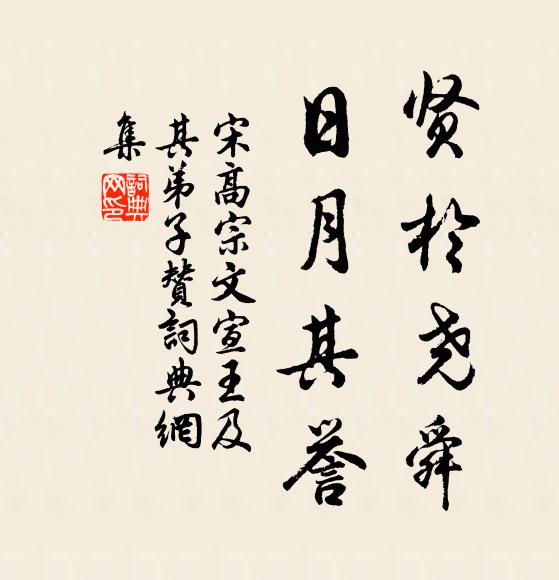 贤於尧舜
日月其誉
宋高宗文宣王及
其弟子赞词典網
集
詞典
网印